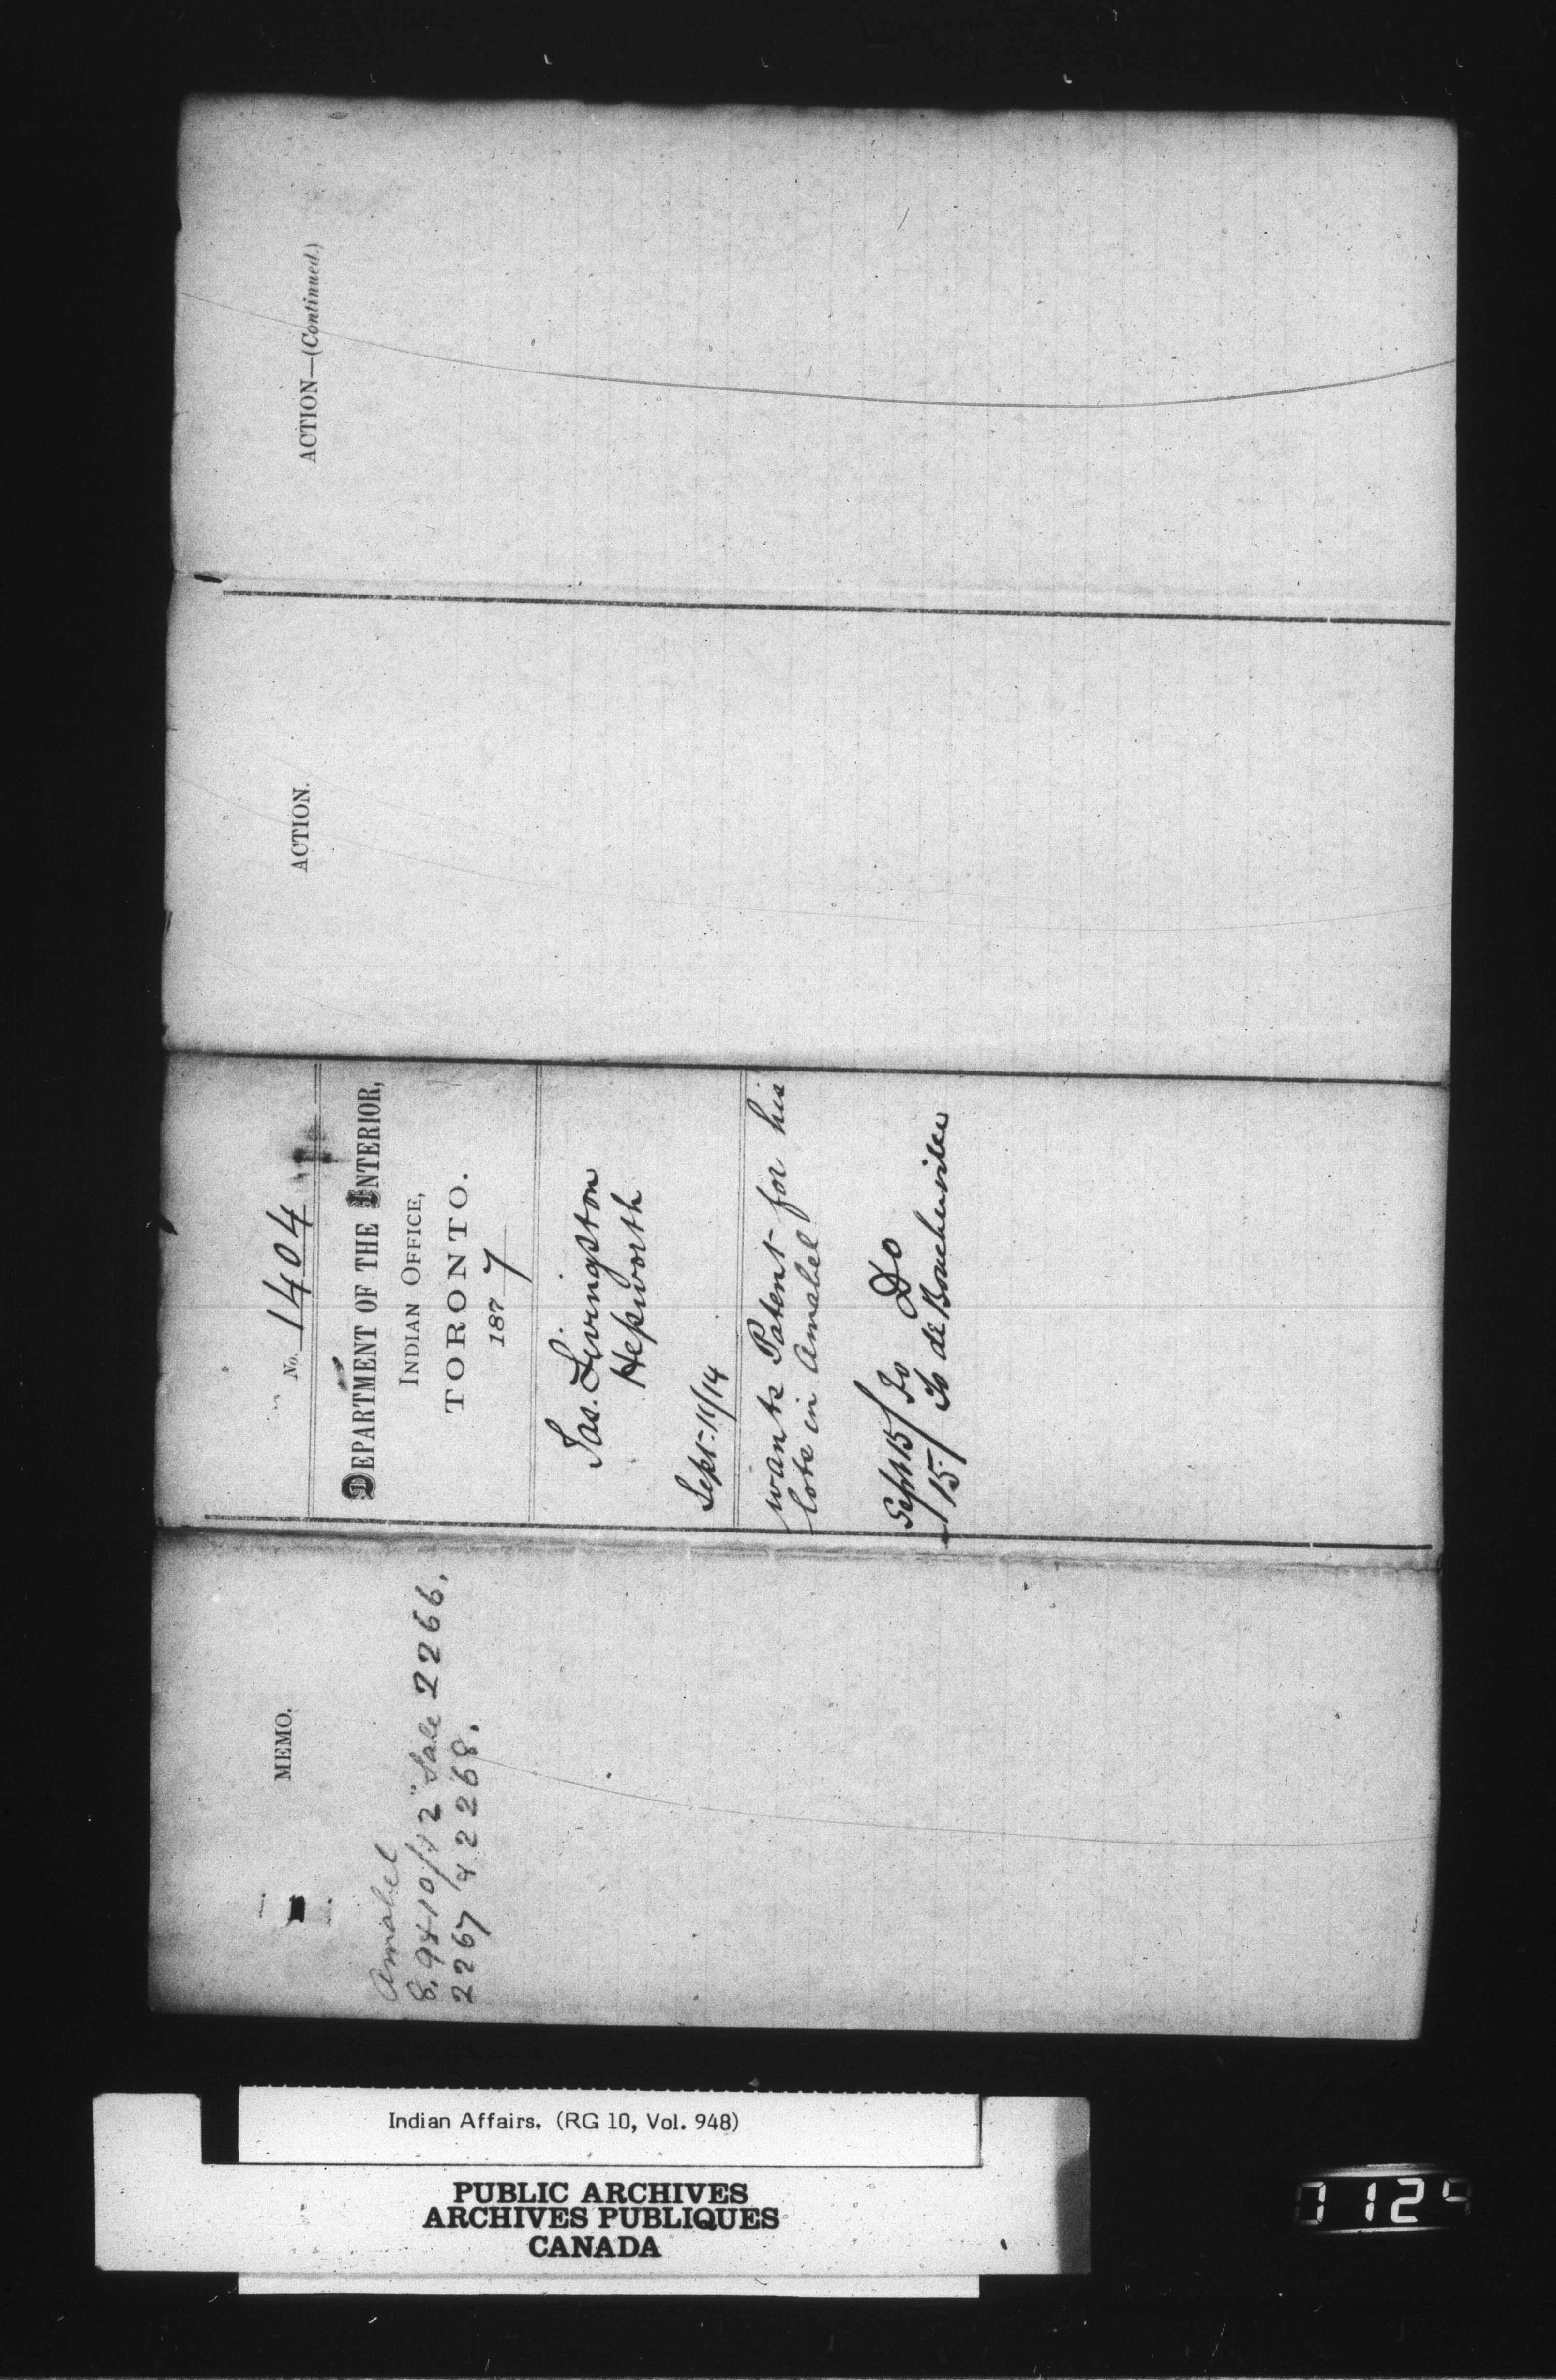 MEMO.
Amabel
8, 9 & 10/12" Sale 2266,
2267 & 2268.
No. 1404
DEPARTMENT OF THE INTERIOR,
INDIAN OFFICE,
TORONTO.
1877
Jas. Livingston
Hepworth
Sept. 11/14
wants Patent for his
lots in Amabel
Sept 15/ To Do
15/ To de Boucherville
ACTION.
ACTION—(Continued.)
Indian Affairs. (RG 10, Vol. 948)
PUBLIC ARCHIVES
ARCHIVES PUBLIQUES
CANADA